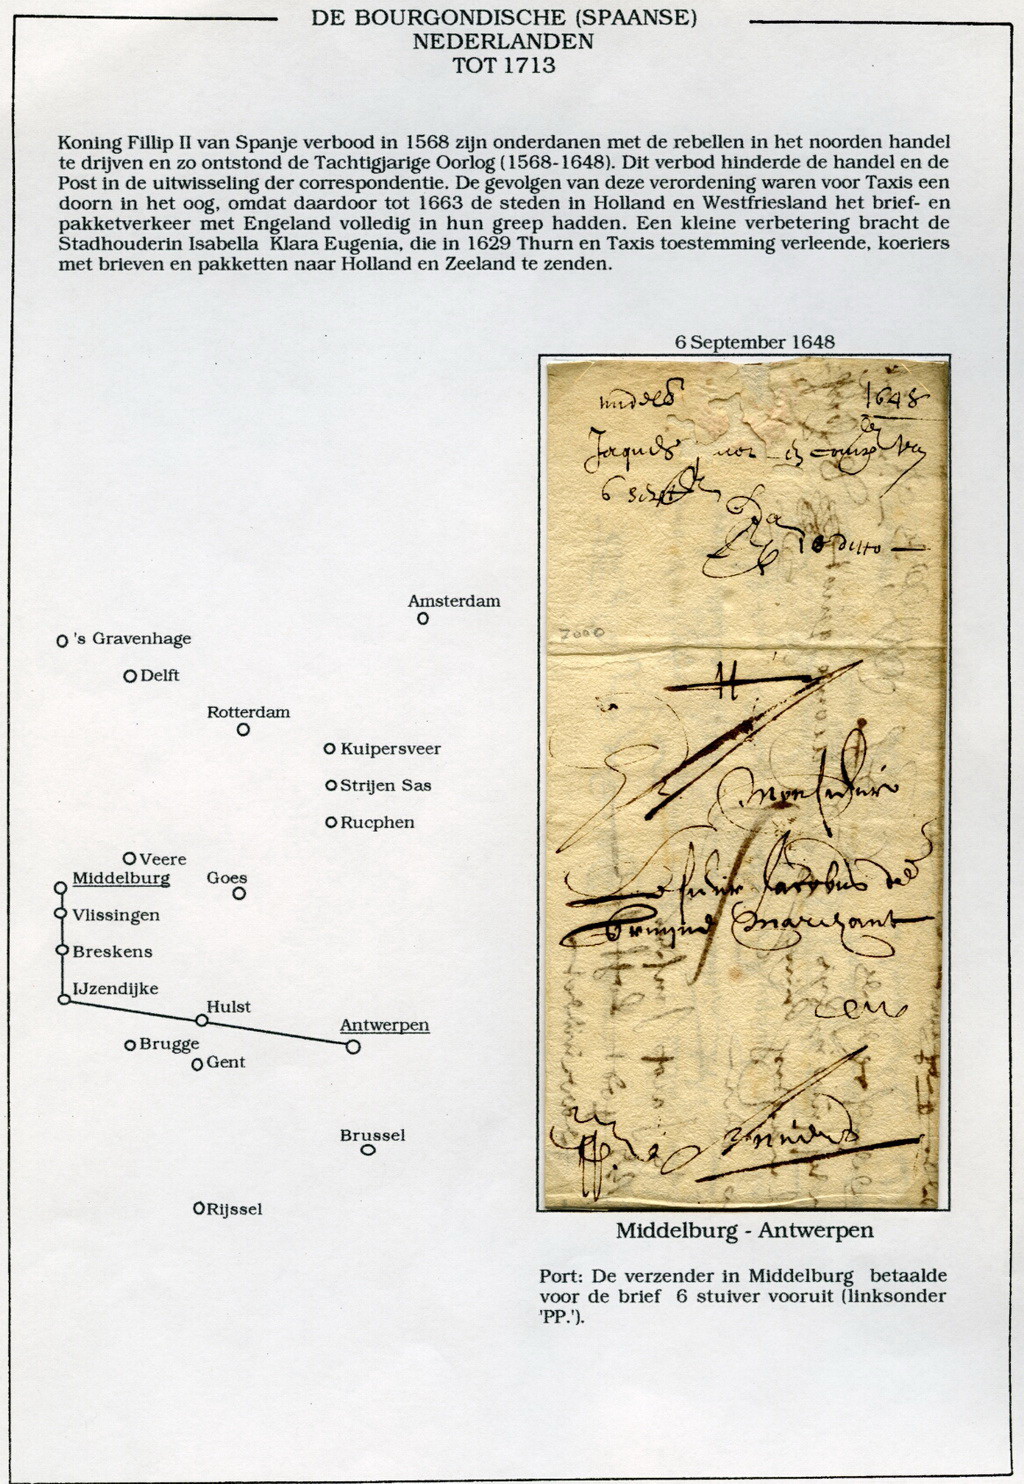 DE BOURGONDISCHE (SPAANSE)
NEDERLANDEN
TOT 1713
Koning Fillip II van Spanje verbood in 1568 zijn onderdanen met de rebellen in het noorden handel
te drijven en zo ontstond de Tachtigjarige Oorlog (1568-1648). Dit verbod hinderde de handel en de
Post in de uitwisseling der correspondentie. De gevolgen van deze verordening waren voor Taxis een
doorn in het oog, omdat daardoor tot 1663 de steden in Holland en Westfriesland het brief- en
pakketverkeer met Engeland volledig in hun greep hadden. Een kleine verbetering bracht de
Stadhouderin Isabella Klara Eugenia, die in 1629 Thurn en Taxis toestemming verleende, koeriers
met brieven en pakketten naar Holland en Zeeland te zenden.
6 September 1648
1648
Jaques
6
ditto
7000
Amsterdam
's Gravenhage
Delft
Rotterdam
Kuipersveer
Strijen Sas
Rucphen
Veere
Middelburg
Goes
Vlissingen
Breskens
IJzendijke
Hulst
Antwerpen
Brugge
Gent
Brussel
Rijssel
Jacobus de
Marchant
en
Middelburg - Antwerpen
Port: De verzender in Middelburg betaalde
voor de brief 6 stuiver vooruit (linksonder
'PP.').